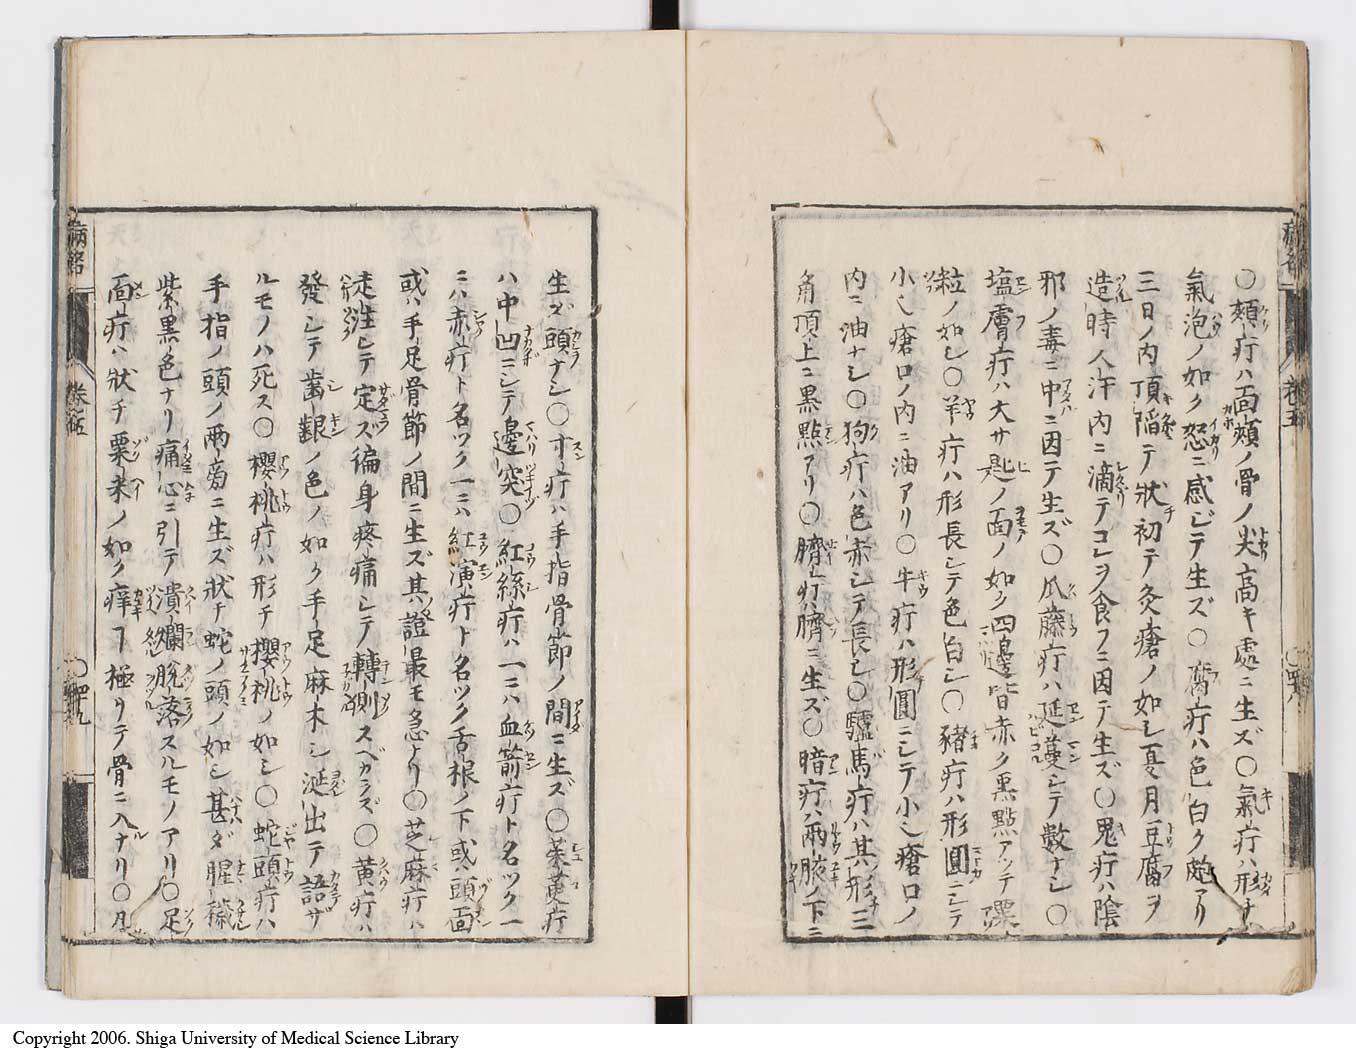 ○頰疔ハ面頰ノ骨ノ尖高キ處ニ生ズ○氣疔ハ形チ
氣泡ノ如ク怒ニ感ジテ生ズ○腐疔ハ色白ク頗アリ
三日ノ内頂陷テ狀初テ灸瘡ノ如シ夏月豆腐ヲ
造時人汗内ニ滴テコレヲ食フニ因テ生ズ○鬼疔ハ陰
邪ノ毒ニ中ニ因テ生ズ○爪藤疔ハ延蔓シテ數ナシ○
塩膚疔ハ大サ匙ノ面ノ如ク四邊皆赤ク黒點アッテ
粒ノ如シ○羊疔ハ形長シテ色白シ○豬疔ハ形圓ニシテ
小シ瘡口ノ内ニ油アリ○牛疔ハ形圓ニシテ小シ瘡口ノ
内ニ油ナシ○狗疔ハ色赤シテ長シ○驢馬疔ハ其ノ形三
角頂上ニ黒點アリ○臍疔ハ臍ニ生ズ○暗疔ハ兩腋ノ下ニ
生ズ頭ナシ○寸疔ハ手指骨節ノ間ニ生ズ○茱萸疔
ハ中凹ニシテ邊突○紅絲疔ハ一ニハ血箭疔ト名ツク一
ニハ赤疔ト名ツク一ニハ紅演疔ト名ツク舌根ノ下或ハ頭面
或ハ手足骨節ノ間ニ生ズ其ノ證最モ急ナリ○芝麻疔ハ
走注シテ定ズ徧身疼痛シテ轉側スベカラズ○黄疔ハ
發シテ齒齦ノ色ノ如ク手足麻木シ涎出テ語ザ
ルモノハ死ス○櫻桃疔ハ形チ櫻桃ノ如シ○蛇頭疔ハ
手指ノ頭ノ兩旁ニ生ズ狀チ蛇ノ頭ノ如シ甚ダ腥穢
紫黒色ナリ痛心ニ引テ潰爛脱落スルモノアリ○足
面疔ハ狀チ粟米ノ如ク痒ヿ極リテ骨ニ入ナリ○凡
卷五
○四十八
病名
卷五
○四十九
Copyright 2006. Shiga University of Medical Science Library